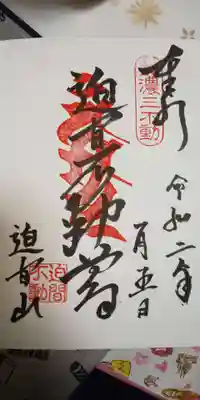 奉拝
濃三不動
令和二年
月五日
迫間不動尊
迫間山
迫間
不動